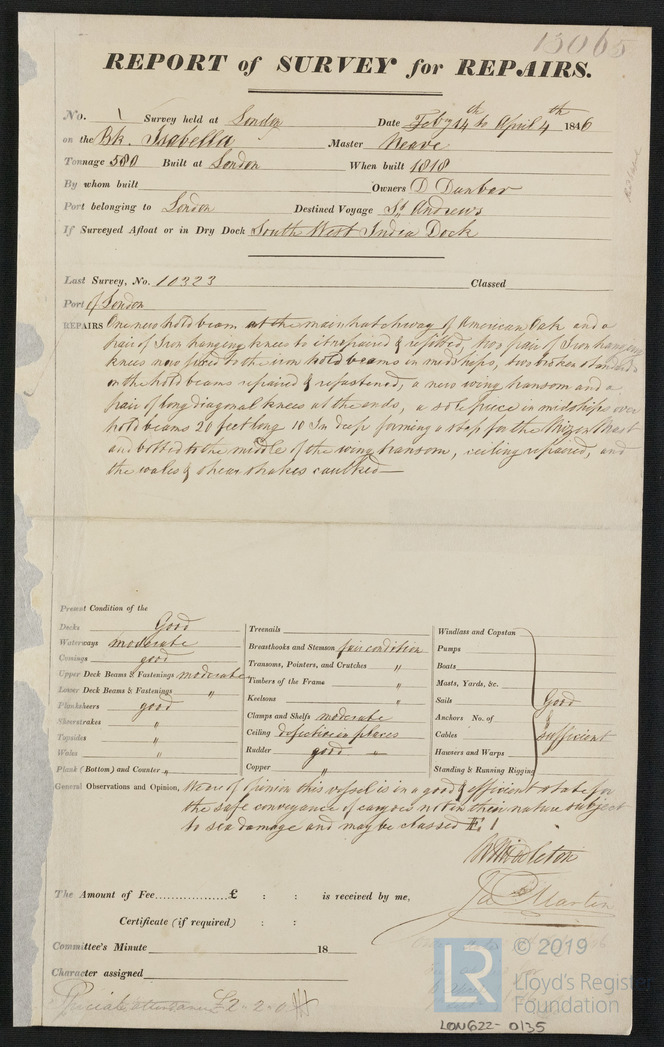 13065
REPORT of SURVEY for REPAIRS.
No. 1 Survey held at London Date Feby 14th to April 4th 1846
on the Bk. Isabella Master Neave
Tonnage 580 Built at London When built 1818
By whom built Owners D Dunbar
Port belonging to London Destined Voyage St Andrews
If Surveyed Afloat or in Dry Dock South West India Dock
Last Survey, No. 10323 Classed
Port of London
REPAIRS One new hold beam at the main hatchway of American Oak and a
pair of Iron hanging knees to it repaired & refitted, two pair of Iron hanging
knees new fixed to the hold beams in midships, two broken standards
on the hold beams repaired & refastened, a new wing transom and a
pair of long diagonal knees at the ends, a sole piece in midships over
hold beams 20 feet long 10 In deep forming a step for the Mizen Mast
and bolted to the middle of the wing transom, ceiling repaired, and
the wales & shear strakes caulked
Present Condition of the
Decks Good
Waterways moderate
Comings good
Upper Deck Beams & Fastenings moderate
Lower Deck Beams & Fastenings "
Planksheers good
Sheerstrakes "
Topsides "
Wales "
Plank (Bottom) and Counter "
Treenails
Breasthooks and Stemson fair condition
Transoms, Pointers, and Crutches "
Timbers of the Frame "
Keelsons "
Clamps and Shelfs moderate
Ceiling defective in places
Rudder good
Copper "
Windlass and Capstan
Pumps
Boats
Masts, Yards, &c.
Sails Good
Anchors No. of &
Cables sufficient
Hawsers and Warps
Standing & Running Rigging
General Observations and Opinion, We are of Opinion this vessel is in a good & efficient state for
the safe conveyance of cargoes not in their nature subject
to sea damage and may be classed E. 1
W Middleton
Jas Martin
The Amount of Fee.................£ : : is received by me,
Certificate (if required) : :
Committee's Minute 18
Character assigned
Special attendance £2-2-0
© 2019
LR
Lloyd's Register
Foundation
LON622-0135